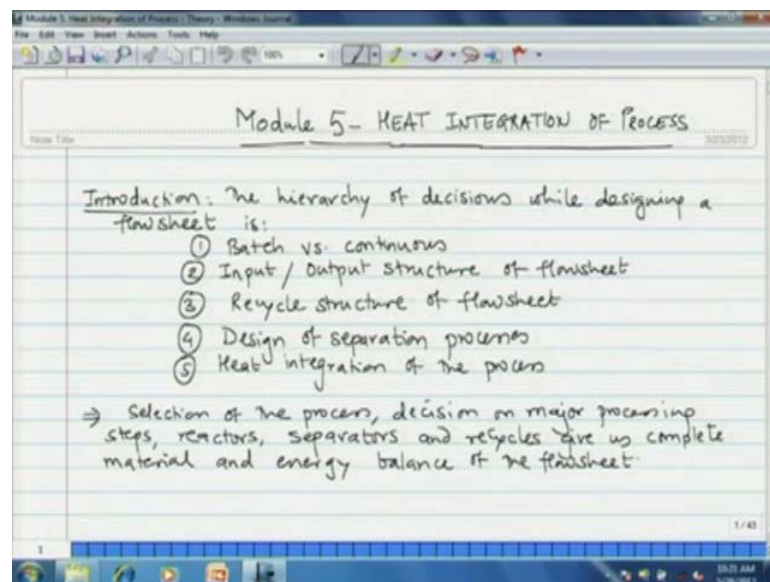 Module 5. Heat Integration of Process - Theory - Windows Journal
File Edit View Insert Actions Tools Help
100%
Module 5 - HEAT INTEGRATION OF PROCESS
Note Title
5/23/2012
Introduction: The hierarchy of decisions while designing a
flowsheet is:
① Batch vs. continuous
② Input / Output structure of flowsheet
③ Recycle structure of flowsheet
④ Design of separation processes
⑤ Heat integration of the process
⇒ Selection of the process, decision on major processing
steps, reactors, separators and recycles give us complete
material and energy balance of the flowsheet.
1 / 43
1
10:21 AM